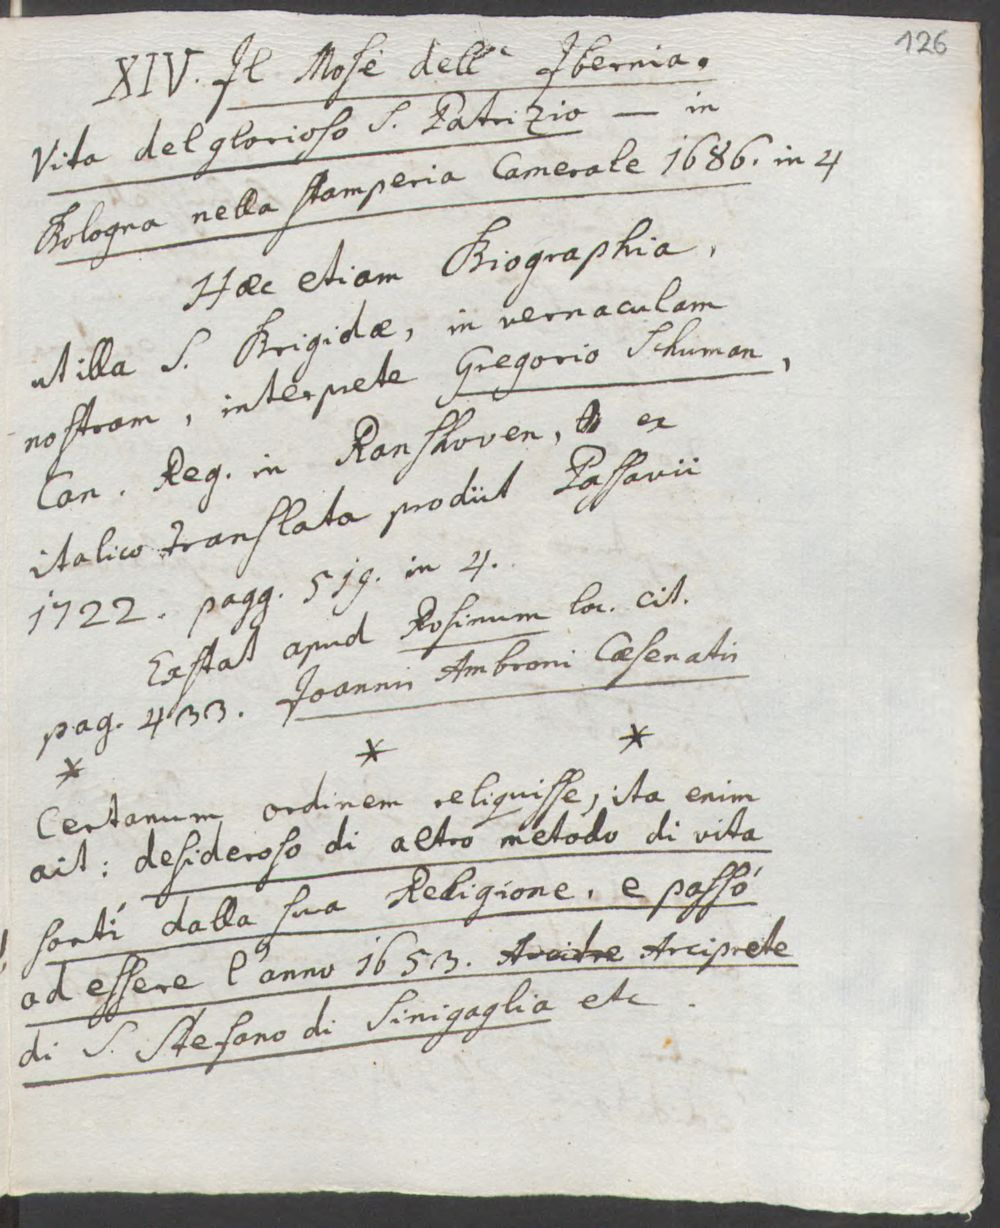 126
XIV. Il Mosè dell' Ibernia.
Vita del glorioso S. Patrizio — in
Bologna nella stamperia Camerale 1686. in 4
Hæc etiam Biographia,
ut illa S. Brigidæ, in vernaculam
nostram, interprete Gregorio Schuman,
Can. Reg. in Ranshoven, ex
italico translata prodiit Passavii
1722. pagg. 519. in 4.
Exstat apud Rosinum loc. cit.
pag. 433. Joannis Ambroni Cæsenatis
* * *
Certanum ordinem reliquisse, ita enim
ait: desideroso di altro metodo di vita
sortì dalla sua Religione, e passò
ad essere l'anno 1653. Arcitre Arciprete
di S. Stefano di Sinigaglia etc.